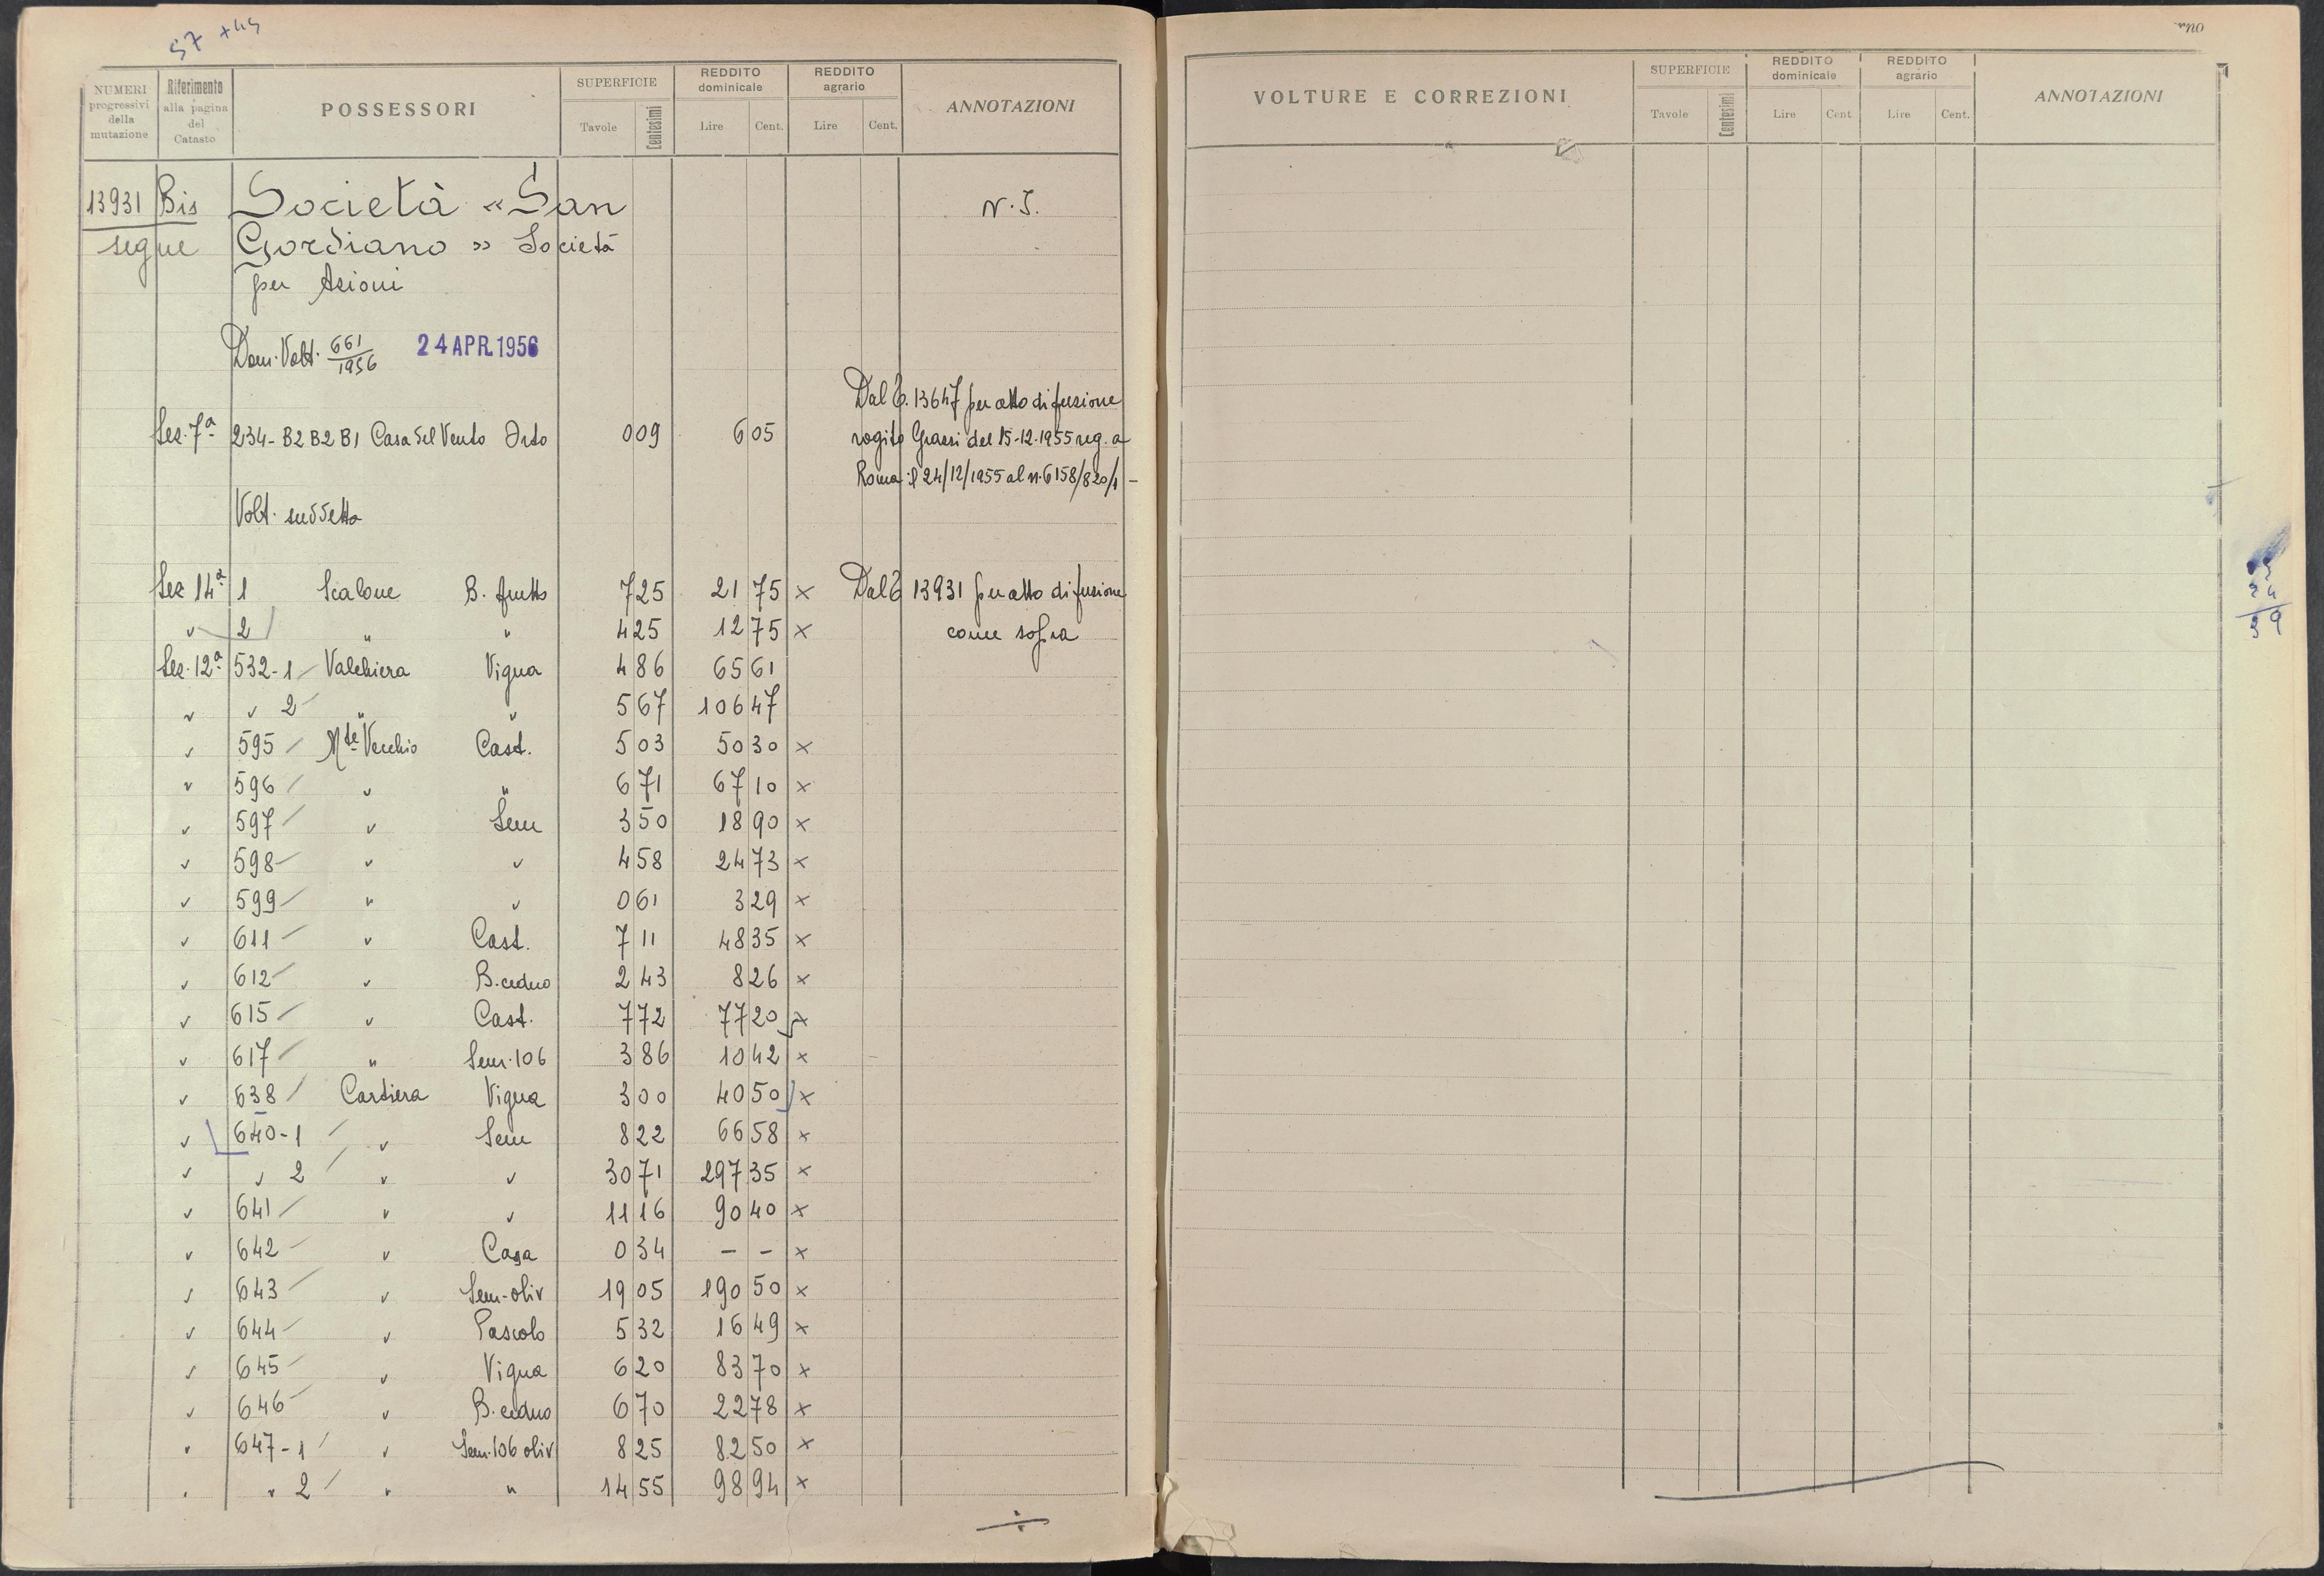 57 +45
NUMERI progressivi della mutazione
Riferimento alla pagina del Catasto
POSSESSORI
SUPERFICIE
Tavole Centesimi
REDDITO dominicale
Lire Cent.
REDDITO agrario
Lire Cent.
ANNOTAZIONI
13931 Bis Società «San N.I.
segue Gordiano» Società
per Azioni
Dom. Volt. 661/1956 24 APR. 1956
Dal 6. 13647 per atto di fusione
Sez. 7ª 234-B2 B2 B1 Casa del Vento Orto 0 09 6 05 rogito Grassi del 15-12-1955 reg. a
Roma il 24/12/1955 al n. 6158/820/1 -
Volt. suddetto
Sez 14ª 1 Scalone B. frutto 7 25 21 75 x Dal 6 13931 per atto di fusione
" 2 " " 4 25 12 75 x come sopra
Sez. 12ª 532-1 Valchiera Vigna 4 86 65 61
" " 2 " " 5 67 106 47
" 595 Mte Vecchio Cast. 5 03 50 30 x
" 596 " " 6 71 67 10 x
" 597 " Sem 3 50 18 90 x
" 598 " " 4 58 24 73 x
" 599 " " 0 61 3 29 x
" 611 " Cast. 7 11 48 35 x
" 612 " B. ceduo 2 43 8 26 x
" 615 " Cast. 7 72 77 20 x
" 617 " Sem. 106 3 86 10 42 x
" 638 Cartiera Vigna 3 00 40 50 x
" 640-1 " Sem 8 22 66 58 x
" " 2 " " 30 71 297 35 x
" 641 " " 11 16 90 40 x
" 642 " Casa 0 34 - - x
" 643 " Sem-oliv 19 05 190 50 x
" 644 " Pascolo 5 32 16 49 x
" 645 " Vigna 6 20 83 70 x
" 646 " B. ceduo 6 70 22 78 x
" 647-1 " Sem. 106 oliv 8 25 82 50 x
" " 2 " " 14 55 98 94 x
VOLTURE E CORREZIONI
SUPERFICIE
Tavole Centesimi
REDDITO dominicale
Lire Cent
REDDITO agrario
Lire Cent.
ANNOTAZIONI
24
39